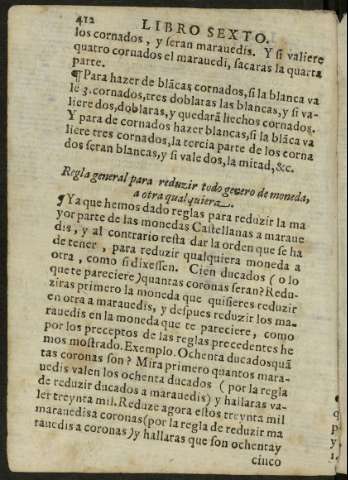 412
LIBRO SEXTO.
los cornados, y seran marauedis. Y si valiere
quatro cornados el marauedi, sacaras la quarta
parte.
¶Para hazer de blãcas cornados, si la blanca va
le 3. cornados, tres doblaras las blancas, y si va-
liere dos, doblaras, y quedarã hechos cornados.
Y para de cornados hazer blancas, si la blãca va
liere tres cornados, la tercia parte de los corna
dos seran blancas, y si vale dos, la mitad, &c.
Regla general para reduzir todo genero de moneda,
a otra qualquiera.
¶Ya que hemos dado reglas para reduzir la ma
yor parte de las monedas Castellanas a maraue
dis, y al contrario resta dar la orden que se ha
de tener, para reduzir qualquiera moneda a
otra, como si dixessen. Cien ducados (o lo
que te pareciere) quantas coronas seran? Redu-
ziras primero la moneda que quisieres reduzir
en otra a marauedis, y despues reduzir los ma-
rauedis en la moneda que te pareciere, como
por los preceptos de las reglas precedentes he
mos mostrado. Exemplo. Ochenta ducados quã
tas coronas son? Mira primero quantos mara-
uedis valen los ochenta ducados (por la regla
de reduzir ducados a marauedis) y hallaras va-
ler treynta mil. Reduze agora estos treynta mil
marauedis a coronas (por la regla de reduzir ma
rauedis a coronas) y hallaras que son ochenta y
cinco